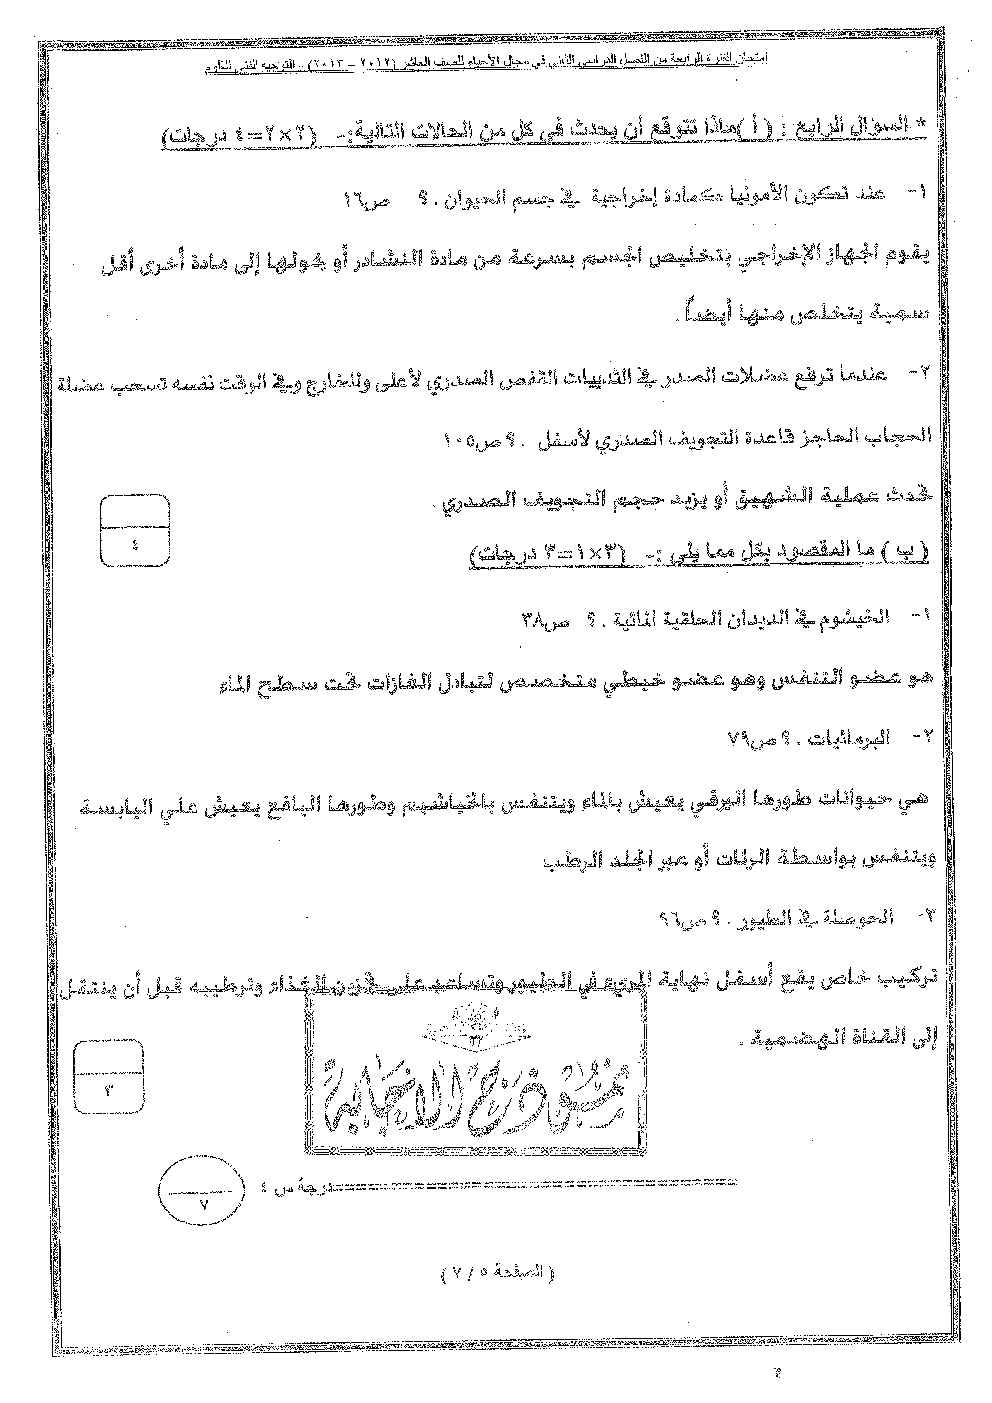 إمتحان الفترة الرابعة من الفصل الدراسي الثاني في مجال الأحياء للصف العاشر (٢٠١٢ – ٢٠١٣) .. التوجيه الفني للعلوم
* السؤال الرابع : ( أ )ماذا تتوقع أن يحدث في كل من الحالات التالية:- (٢×٢=٤ درجات)
١- عند تكون الأمونيا كمادة إخراجية في جسم الحيوان . ؟ ص١٦
يقوم الجهاز الإخراجي بتخليص الجسم بسرعة من مادة النشادر أو يحولها إلى مادة أخرى أقل
سمية يتخلص منها أيضاً .
٢- عندما ترفع عضلات الصدر في الثدييات القفص الصدري لأعلى وللخارج وفي الوقت نفسه تسحب عضلة
الحجاب الحاجز قاعدة التجويف الصدري لأسفل . ؟ ص١٠٥
تحدث عملية الشهيق أو يزيد حجم التجويف الصدري .
٤
( ب ) ما المقصود بكل مما يلي :- (٣×١=٣ درجات)
١- الخيشوم في الديدان الحلقية المائية . ؟ ص٣٨
هو عضو التنفس وهو عضو خيطي متخصص لتبادل الغازات تحت سطح الماء
٢- البرمائيات . ؟ ص٧٩
هي حيوانات طورها اليرقي يعيش بالماء ويتنفس بالخياشيم وطورها اليافع يعيش علي اليابسة
ويتنفس بواسطة الرئات أو عبر الجلد الرطب
٣- الحوصلة في الطيور . ؟ ص٩٦
تركيب خاص يقع أسفل نهاية المريء في الطيور وتساعد على تخزين الغذاء وترطيبه قبل أن ينتقل
إلى القناة الهضمية .
٣
نموذج الإجابة
درجة س ٤
٧
( الصفحة ٥ / ٧ )